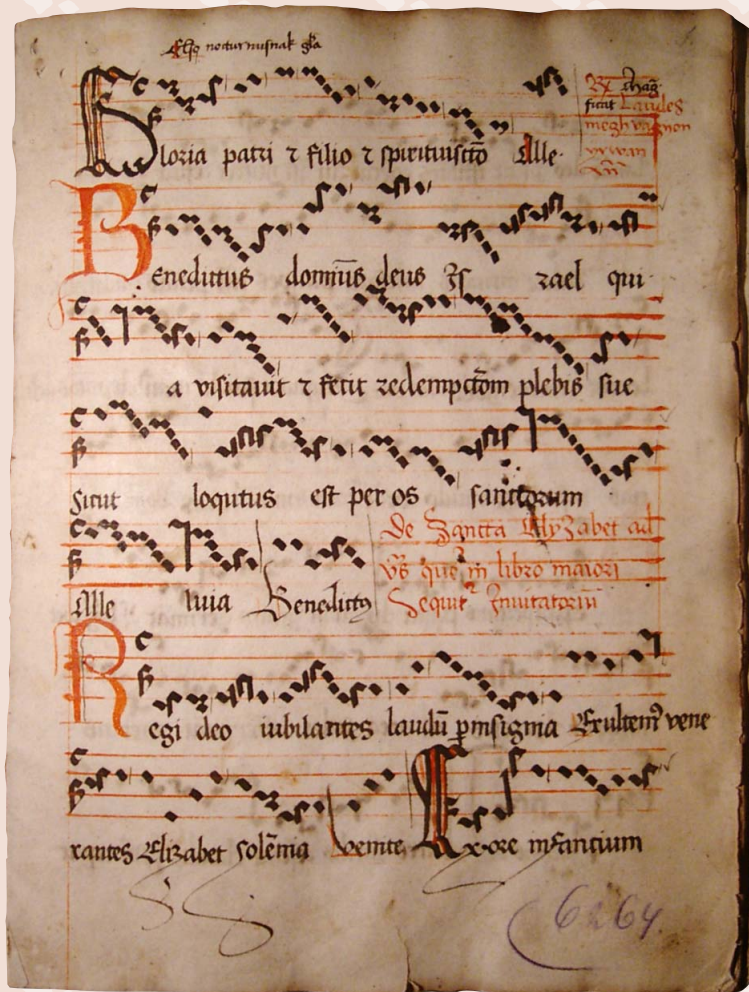 Elso nocturnusnak gła
Gloria patri ⁊ filio ⁊ spirituisctō Alle
ficut Laudes
megh vagnon
Benedictus domin̄us deus Is rael qui
a visitauit ⁊ fecit redempctōm plebis sue
sicut loqutus est per os sanctorum
Alle luia Benedictus
de Sancta Elyzabet ad
que in libro maiori
Sequitr Inuitatoriū
Regi deo iubilantes laudū ꝑinsignia Exultemꝰ vene
rantes Elizabet solēnia venite Exore infantium
6264.